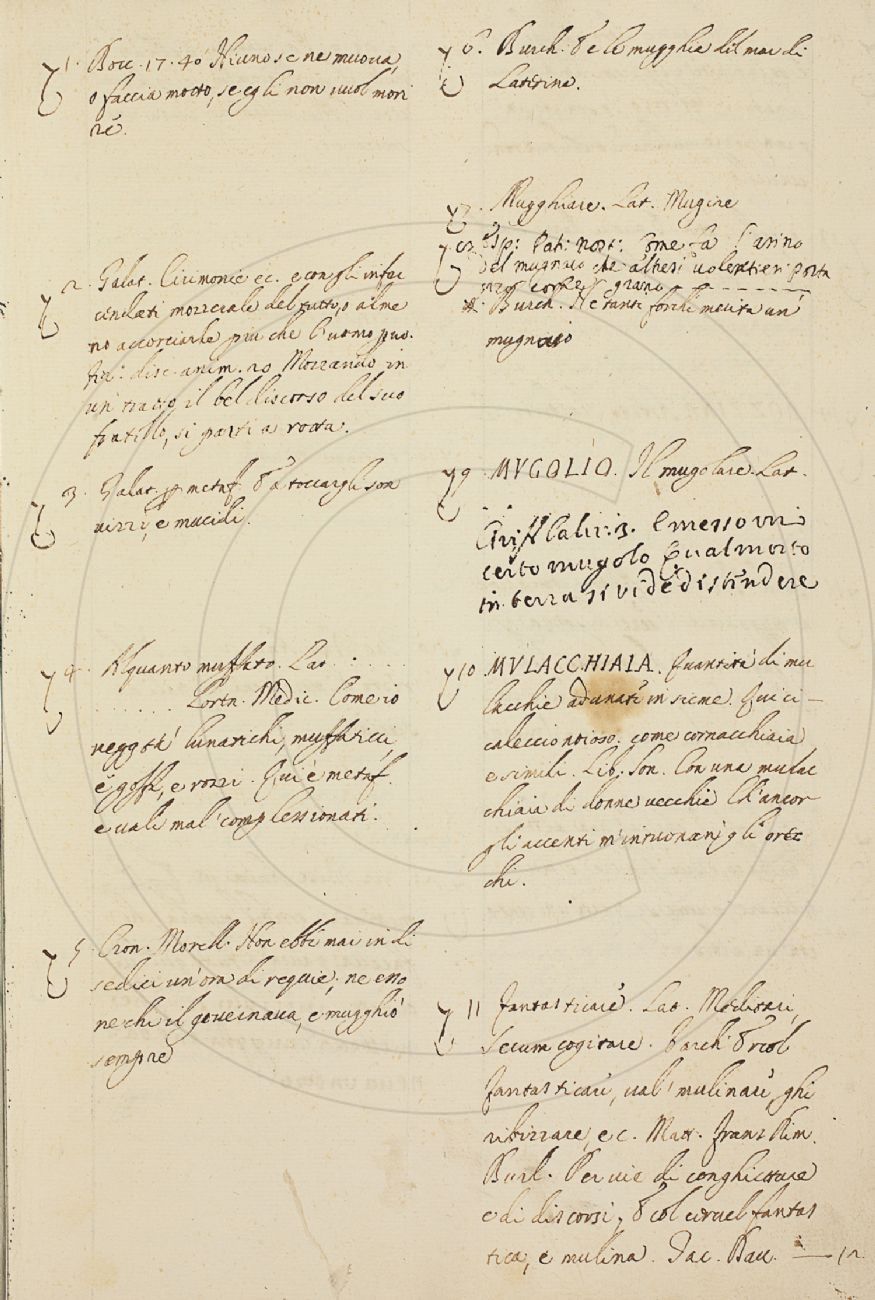 1. Bocc. 17. 40 Niuno se ne muova,
o faccia motto, se egli non vuol mori
re.
2. Galat. Cirimonie ec. e con gli infac
cendati mozzarle del tutto, o alme
no accorciarle più che l'uomo può.
disc. anim. 20 Mozzando in
un tratto il bel discorso del suo
fratello, si partì a rotta.
3. Galat. p metaf. E a toccargli son
vizzi, e mucidi.
4. Alquanto muffato. Lat. . . . .
. . . . . . Lortn. Medic. Come io
veggo lunatichi, muffaticci,
e goffi, e rozzi. Qui è metaf.
e vale mal complessionati.
5. Cron. Morell. Non ebbi mai in di
sedici un'ora di requie, ne eno
ne chi il governava, e mugghiò
sempre
6. Burch. E le mugghia del mar di
Laterina.
7. Mugghiare. Lat. Mugire
Esp: Pat: nost: Come fa l'asino
del mugnaio che altresì volentieri porta
orzo come grano
8. Burch. Ne tanti forchi merita un
mugnaio
9. MVGOLIO. Il mugolare. Lat.
. . Ciriff Calu: 3. E messo un
certo mugolo Qual morto
in terra si vide distendere
10. MVLACCHIAIA. Quantità di mu
lacchie adunate insieme. Qui ci-
caleccio noioso, come cornacchiaia
e simili. Lib. Son. Con una mulac
chiaia di donne vecchie Ch'ancor
gli accenti m'intronan gli orec
chi.
11. Fantasticare. Lat. Meditari,
Secum cogitare. Varch. Ercol
Fantasticare, val' mulinare, ghi
ribizzare, ec. Matt. Franz Rim.
Burl. Per vie di conghietture
e di discorsi, E col cervel fantas
tica, e mulina. Iac. Bau. — 12